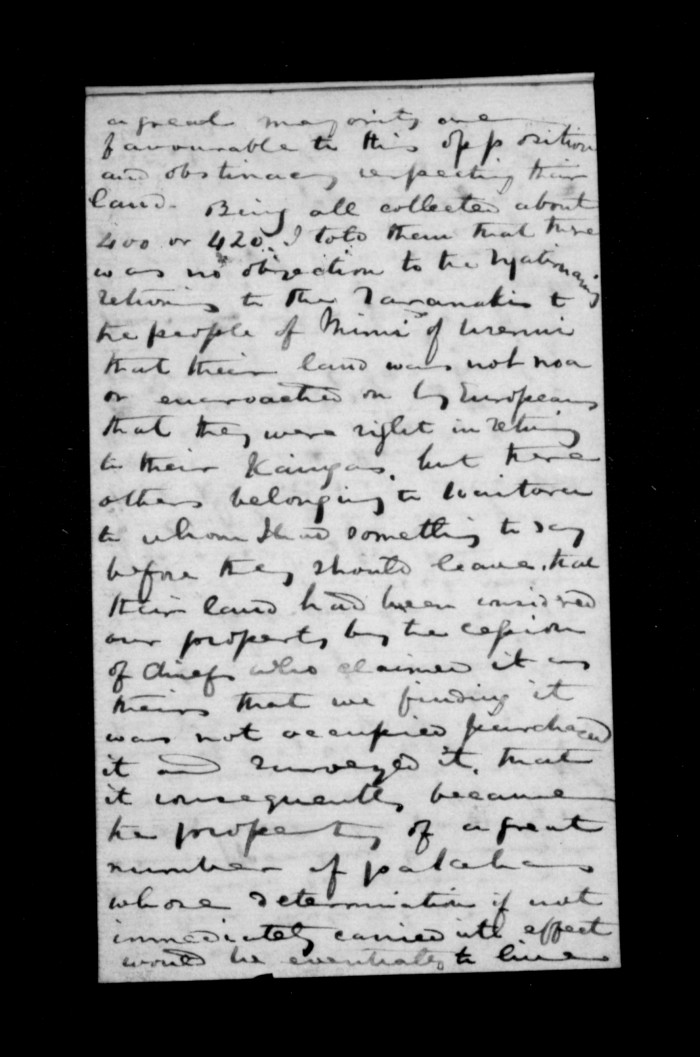 a great majority are
favourable to this opposition
and obstinacy respecting their
land. Being all collected about
400 or 420. I told them that there
was no objection to the Ngatimaring
returning to the Taranakis &
the people of Mimi & of Uremui
that their land was not now
or encroached on by Europeans
that they were right in returning
to their Kaingas, but there
others belonging to Waitara
to whom I had something to say
before they should leave, that
their land had been considered
our property by the cession
of chiefs who claimed it as
theirs that we finding it
was not occupied purchased
it and surveyed it, that
it consequently became
the property of a great
number of pakehas
whose determination if not
immediately carried into effect
would be eventually to live